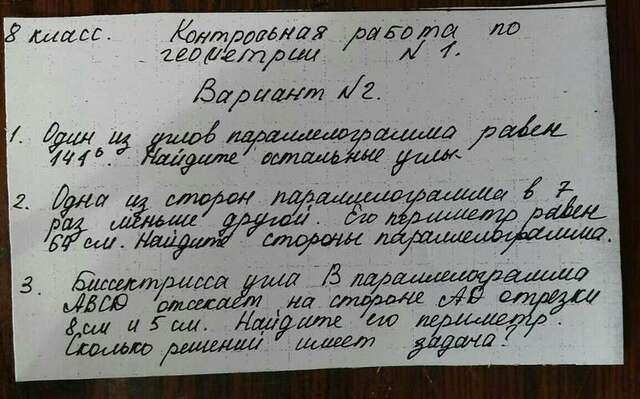 8 класс. Контрольная работа по
геометрии N 1.
Вариант N2.
1. Один из углов параллелограмма равен
141°. Найдите остальные углы.
2. Одна из сторон параллелограмма в 7
раз меньше другой. Его периметр равен
см. Найдите стороны параллелограмма.
3. Биссектрисса угла B параллелограмма
ABCD отсекает на стороне AD отрезки
8 см и 5 см. Найдите его периметр.
Сколько решений имеет задача?